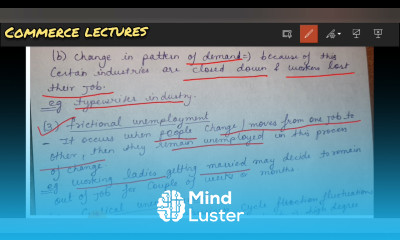 COMMERCE LECTURES
(b) Change in pattern of demand =) because of this
Certain industries are closed down & workers lost
their Job.
eg typewriter industry.
(2) Frictional unemployment
- It occurs when people change / moves from one job to
other, then they remain unemployed in this process
of change.
eg working ladies getting married may decide to remain
out of job for couple of weeks or months
Mind
Luster